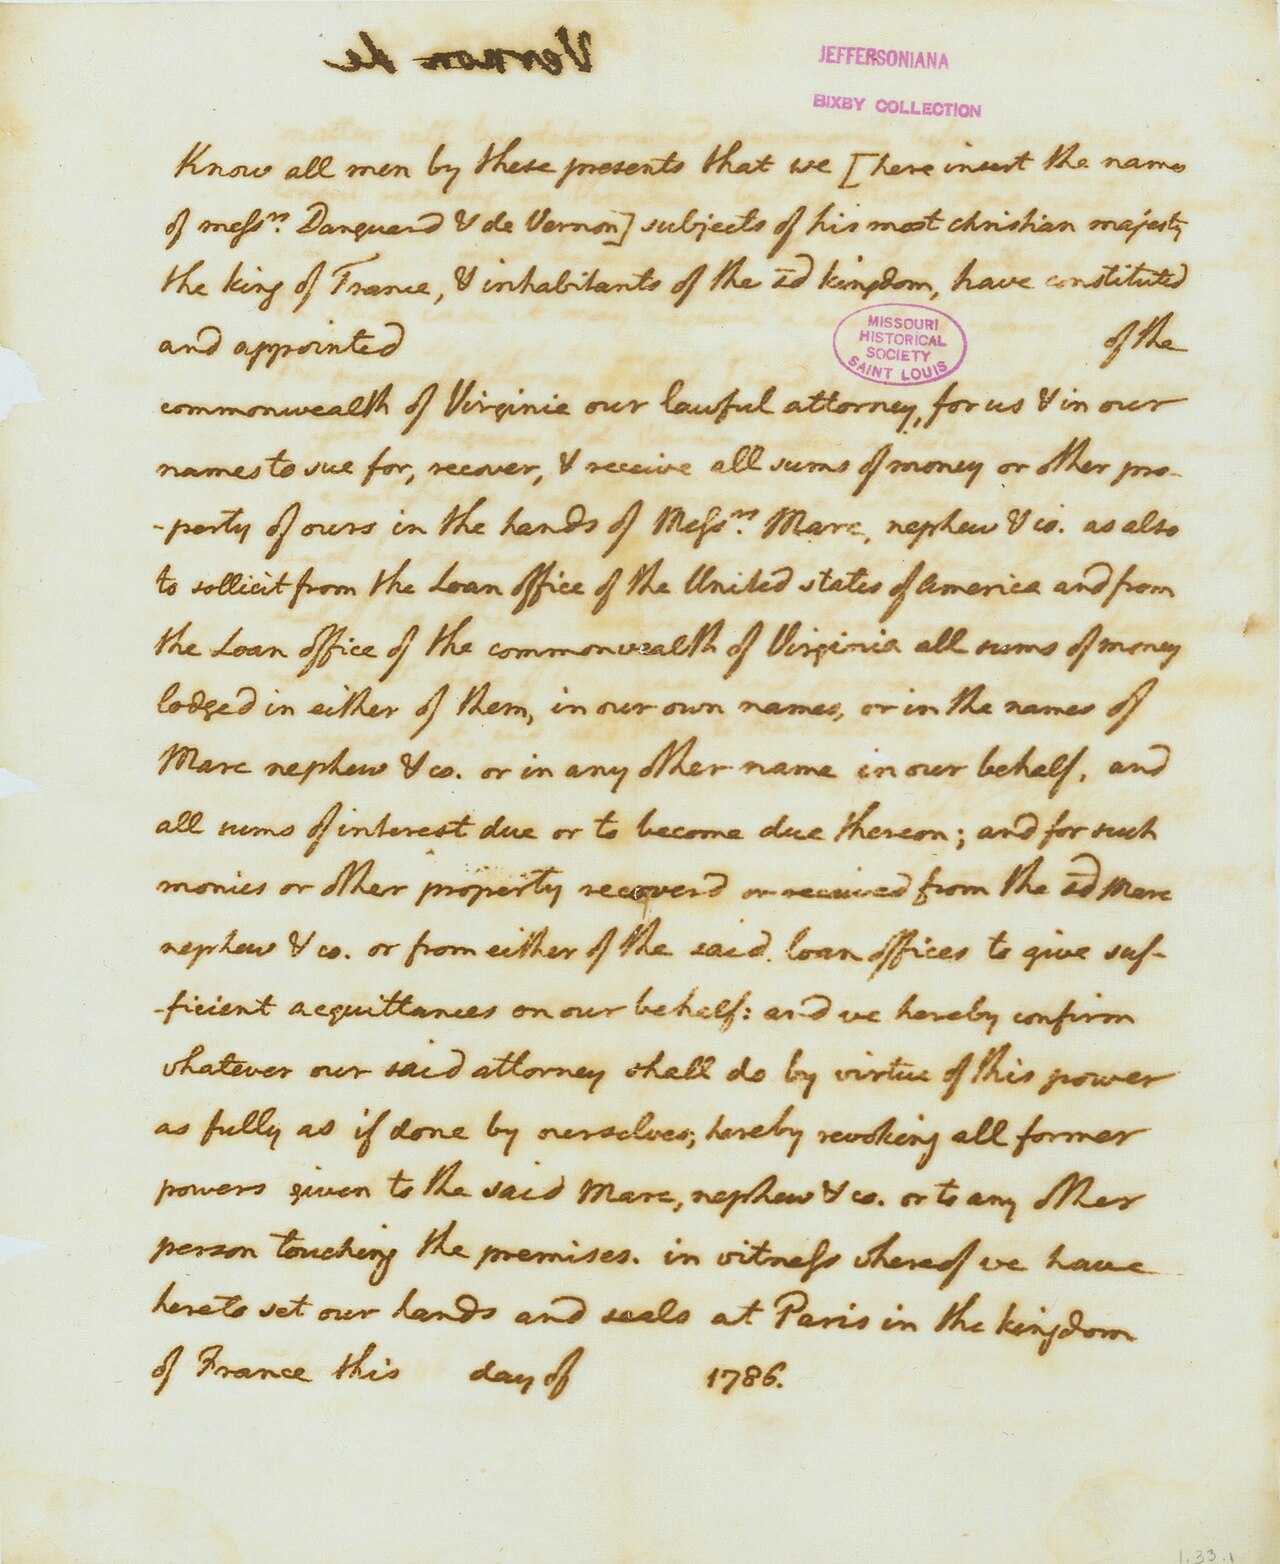 Vernon de
JEFFERSONIANA
BIXBY COLLECTION
Know all men by these presents that we [here insert the names
of messrs. Danguard & de Vernon] subjects of his most christian majesty
the king of France, & inhabitants of the sd kingdom, have constituted
and appointed of the
MISSOURI
HISTORICAL
SOCIETY
SAINT LOUIS
commonwealth of Virginia our lawful attorney, for us & in our
names to sue for, recover, & receive all sums of money or other pro-
-perty of ours in the hands of Messrs. Marc, nephew & co. as also
to sollicit from the Loan office of the United states of America and from
the Loan office of the commonwealth of Virginia all sums of money
lodged in either of them, in our own names, or in the names of
Marc nephew & co. or in any other name in our behalf, and
all sums of interest due or to become due thereon; and for such
monies or other property recoverd or received from the sd Marc
nephew & co. or from either of the said loan offices to give suf-
-ficient acquittances on our behalf: and we hereby confirm
whatever our said attorney shall do by virtue of this power
as fully as if done by ourselves; hereby revoking all former
powers given to the said Marc, nephew & co. or to any other
person touching the premises. in witness whereof we have
hereto set our hands and seals at Paris in the kingdom
of France this day of 1786.
1.33.1